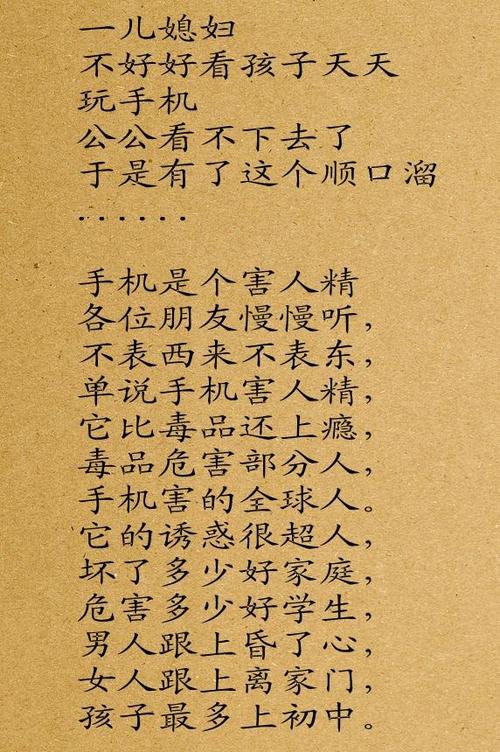 一儿媳妇
不好好看孩子天天
玩手机
公公看不下去了
于是有了这个顺口溜
......
手机是个害人精
各位朋友慢慢听，
不表西来不表东，
单说手机害人精，
它比毒品还上瘾，
毒品危害部分人，
手机害的全球人。
它的诱惑很超人，
坏了多少好家庭，
危害多少好学生，
男人跟上昏了心，
女人跟上离家门，
孩子最多上初中。